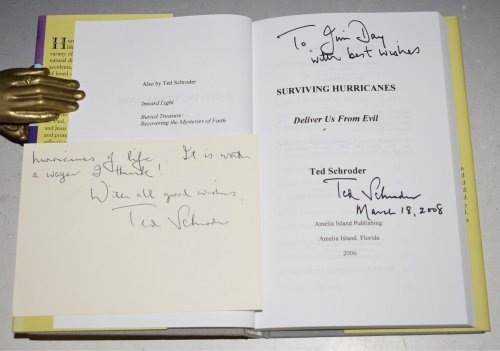 Also by Ted Schroder
Inward Light
Buried Treasure:
Recovering the Mysteries of Faith
hurricanes of life. It is worth
a wager I think!
With all good wishes,
Ted Schroder
To Jim Day
with best wishes
SURVIVING HURRICANES
Deliver Us From Evil
Ted Schroder
Ted Schroder
March 18, 2008
Amelia Island Publishing
Amelia Island, Florida
2006